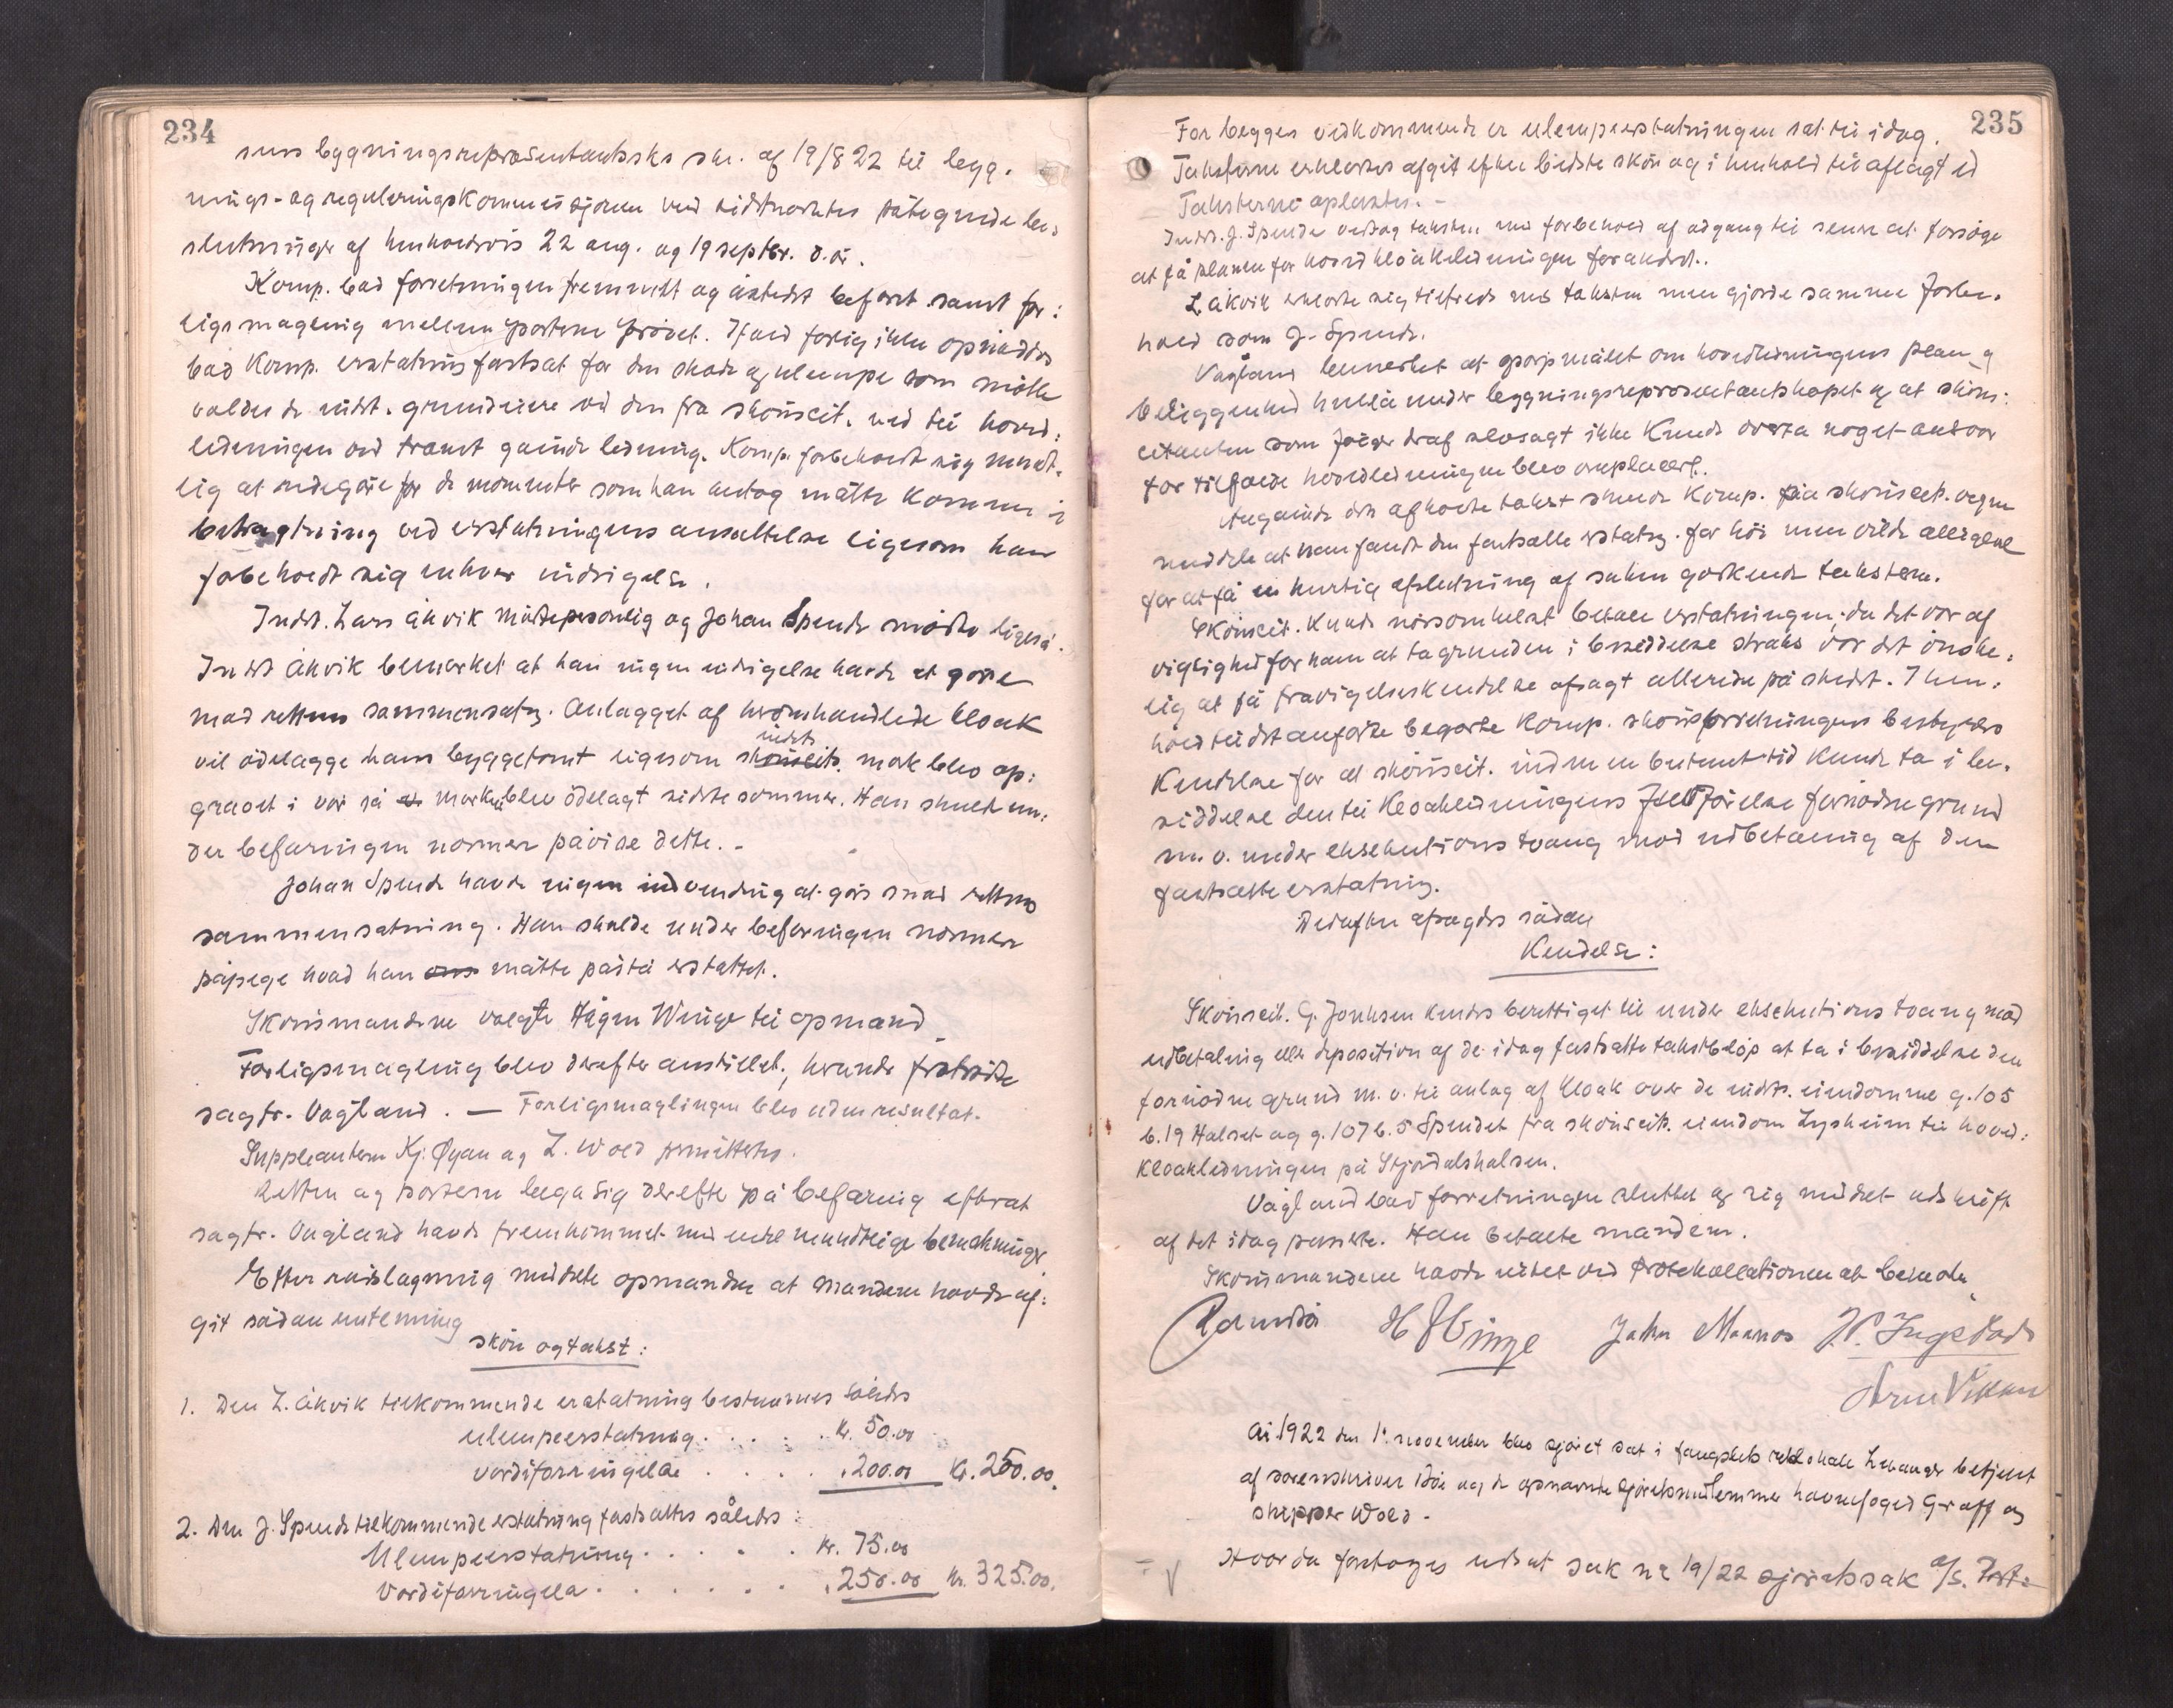 234
sens bygningsrepræsentantsks skr. af 19/8 22 til bygg.
nings- og reguleringskommissjonen ved sidstnævntes påtegnede be-
slutninger af henholdsvis 22 aug. og 19 septbr. d. år.
Komp. bad forretningen fremmet og åstedet befaret samt for:
ligsmægling mellem parterne prøvet. Ifald forlig ikke opnåddes
bad Komp. erstatning fastsat for den skade og ulempe som måtte
voldes de indst. grundeiere ved den fra skönscit. ned til hoved:
ledningen ved tramt gående ledning. Komp. forbeholdt sig mundt-
lig at redegöre for de momenter som han antog måtte komme i
betragtning ved erstatningens ansættelse ligesom han
forbeholdt sig enhver indsigelse.
Indst. Lars Åkvik mødte personlig og Johan Spende mødte ligeså.
Indst Åkvik bemærket at han ingen indsigelse havde at göre
mod rettens sammensætn. Anlægget af heromhandlede kloak
vil ödelægge hans byggetomt ligesom skönscits. mark blev op:
indsts
gravet i vår så marken blev ödelagt sidste sommer. Han skulde un:
der befaringen nærmere påvise dette. -
Johan Spende havde ingen indvending at göre mod rettens
sammensætning. Han skulde under befaringen nærmere
påpege hvad han måtte påstå erstattet.
Skönsmændene valgte Hågen Winge til opmand
Forligsmægling blev derefter anstillet, herunder fratrådte
sagfr. Vågland. — Forligsmæglingen blev uden resultat.
Suppleanterne Kj. Øyan og L. Wold permittertes.
Retten og parterne begav sig derefter på befaring efterat
sagfr. Vågland havde fremkommet med endel mundtlige bemerkninger
Efter rådslagning meddelte opmanden at mændene havde af:
git sådan enstemmig
skön og takst:
1. Den L. Åkvik tilkommende erstatning bestemmes således
ulempeerstatning . . . . . kr. 50.00
værdiforringelse . . . . . " 200.00 Kr. 250.00.
2. Den J. Spende tilkommende erstatning fastsættes således:
Ulempeerstatning . . . . . kr. 75.00
Værdiforringelse . . . . . . " 250.00 kr. 325.00.
235
For begges vedkommende er ulempeerstatningen sat til idag.
Taksterne erklæres afgit efter bedste skön og i henhold til aflagt ed
Taksterne oplæstes. -
Indst. J. Spende vedtog taksten med forbehold af adgang til senere at forsöge
at få planen for hovedkloakledningen forandret..
L Åkvik erklærte sig tilfreds med taksten men gjorde samme forbe-
hold som J. Spende.
Vågland bemerket at spørsmålet om hovedledningens plan og
beliggenhed hørte under bygningsrepræsentantskapet og at sköns:
citanten som følge deraf selvsagt ikke kunde overta noget ansvar
for tilfælde hovedledningen blev omplacert.
Angående den afholdte takst skulde Komp. på skönscit. vegne
meddele at han fandt den fastsatte erstatn. for höi men vilde alligevel
for at få en hurtig afslutning af saken godkjende taksterne.
Skönscit. kunde nårsomhelst betale erstatningen; da det var af
vigtighed for ham at ta grunden i besiddelse straks var det önske-
lig at få fravigelseskendelse afsagt allerede på stedet. I hen-
hold til det anførte begærte Komp. skönsforretningens bestyrers
Kendelse for at skönscit. inden en bestemt tid kunde ta i be-
siddelse den til kloakledningens fornödne grund
m. v. under eksekutions tvang mod udbetaling af den
fastsatte erstatning.
Derefter afsagdes sådan
Kendelse:
Skönscit. G. Jonhsen kendes berettiget til under eksekutions tvang mod
udbetaling eller deposition af de idag fastsatte takstbeløp at ta i besiddelse den
fornödne grund m. v. til anlæg af kloak over de indsts. eiendomme g. 105
b. 19 Halset og g. 107 b. 5 Spendet fra skönscits. eiendom Lysheim til hoved:
kloakledningen på Stjördalshalsen.
Vågland bad forretningen sluttet og sig meddelt udskrift
af det idag passerte. Han betalte mændene.
Skönsmændene havde intet ved protokollationen at bemerke.
H Winge John Mannos P. Ingstad
Arne Vikan
År 1922 den 1. november blev sjöret sat i fængslets retslokale Levanger betjent
af sorenskriver Idøe og de opnævnte sjöretsmedlemmer havnefoged Graff og
skipper Wold. -
Hvorda foretoges utsat sak nr 19/22 sjöretssak A/S.